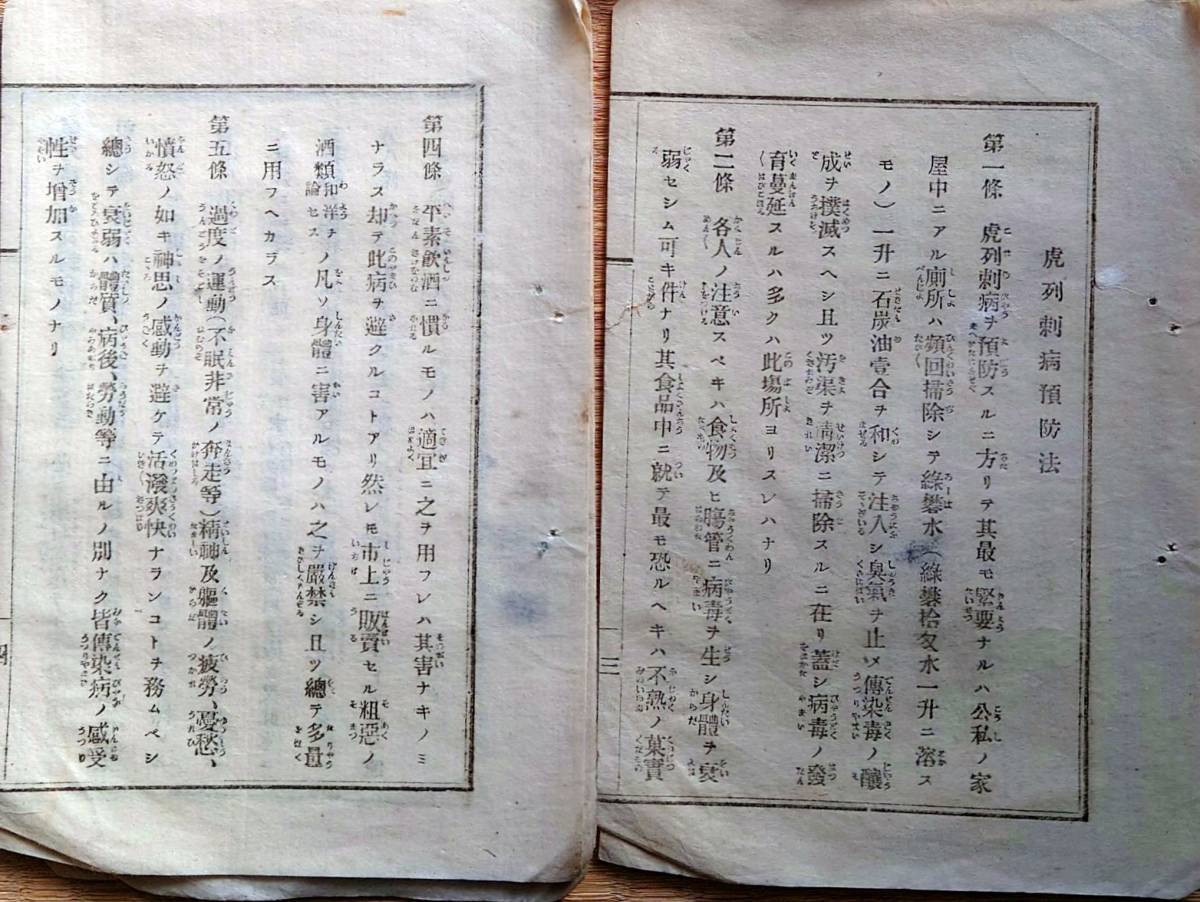 虎列刺病預防法
第一條 虎列刺病ヲ預防スルニ方リテ其最モ緊要ナルハ公私ノ家
屋中ニアル廁所ハ頻回掃除シテ綠礬水(綠礬拾匁水一升ニ溶ス
モノ)一升ニ石炭油壹合ヲ和シテ注入シ臭氣ヲ止メ傳染毒ノ釀
成ヲ撲滅スヘシ且ツ汚渠ヲ淸潔ニ掃除スルニ在リ蓋シ病毒ノ發
育蔓延スルハ多クハ此場所ヨリスレハナリ
第二條 各人ノ注意スベキハ食物及ヒ腸管ニ病毒ヲ生シ身體ヲ衰
弱セシム可キ件ナリ其食品中ニ就テ最モ恐ルヘキハ不熟ノ菓實
三
第四條 平素飮酒ニ慣ルモノハ適宜ニ之ヲ用フレハ其害ナキノミ
ナラス却テ此病ヲ避クルコトアリ然レモ市上ニ販賣セル粗惡ノ
酒類和洋ヲ論セス凡ソ身體ニ害アルモノハ之ヲ嚴禁シ且ツ總テ多量
ニ用フヘカラス
第五條 過度ノ運動(不眠非常ノ奔走等)精神及軀體ノ疲勞、憂愁、
憤怒ノ如キ神思ノ感動ヲ避ケテ活潑爽快ナランコトヲ務ムベシ
總シテ衰弱ハ體質、病後、勞動等ニ由ルノ別ナク皆傳染病ノ感受
性ヲ增加スルモノナリ
四